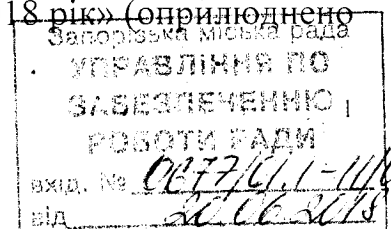 18 рік» (оприлюднено
Запорізька міська рада
УПРАВЛІННЯ ПО
ЗАБЕЗПЕЧЕННЮ
РОБОТИ РАДИ
вхід. №
від 20.06.2018